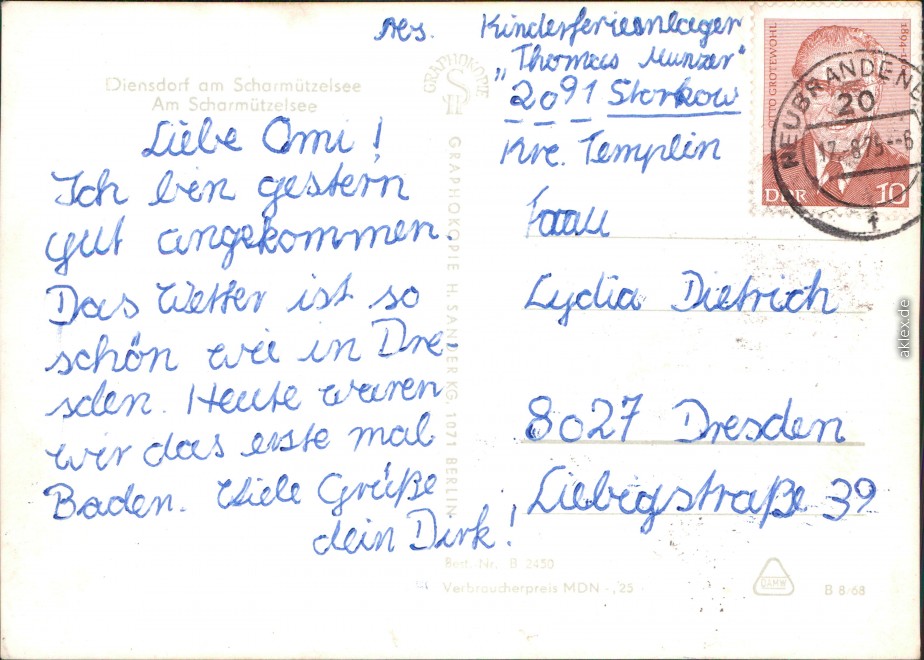 Diensdorf am Scharmützelsee
Am Scharmützelsee
Liebe Omi!
Ich bin gestern
gut angekommen.
Das Wetter ist so
schön wie in Dre-
sden. Heute waren
wir das erste mal
Baden. Viele Grüße
dein Dirk!
GRAPHOKOPIE
GRAPHOKOPIE H. SANDER KG, 1071 BERLIN
Abs. Kinderferienlager
"Thomas Munzer"
2091 Storkow
Kre. Templin
Frau
Lydia Dietrich
8027 Dresden
Liebigstraße 39
OTTO GROTEWOHL 1894-
DDR 10
NEUBRANDENB
20
17.-8.75--6
f
Best. Nr. B 2450
Verbraucherpreis MDN -,25
DAMW
B 8/68
aklex.de